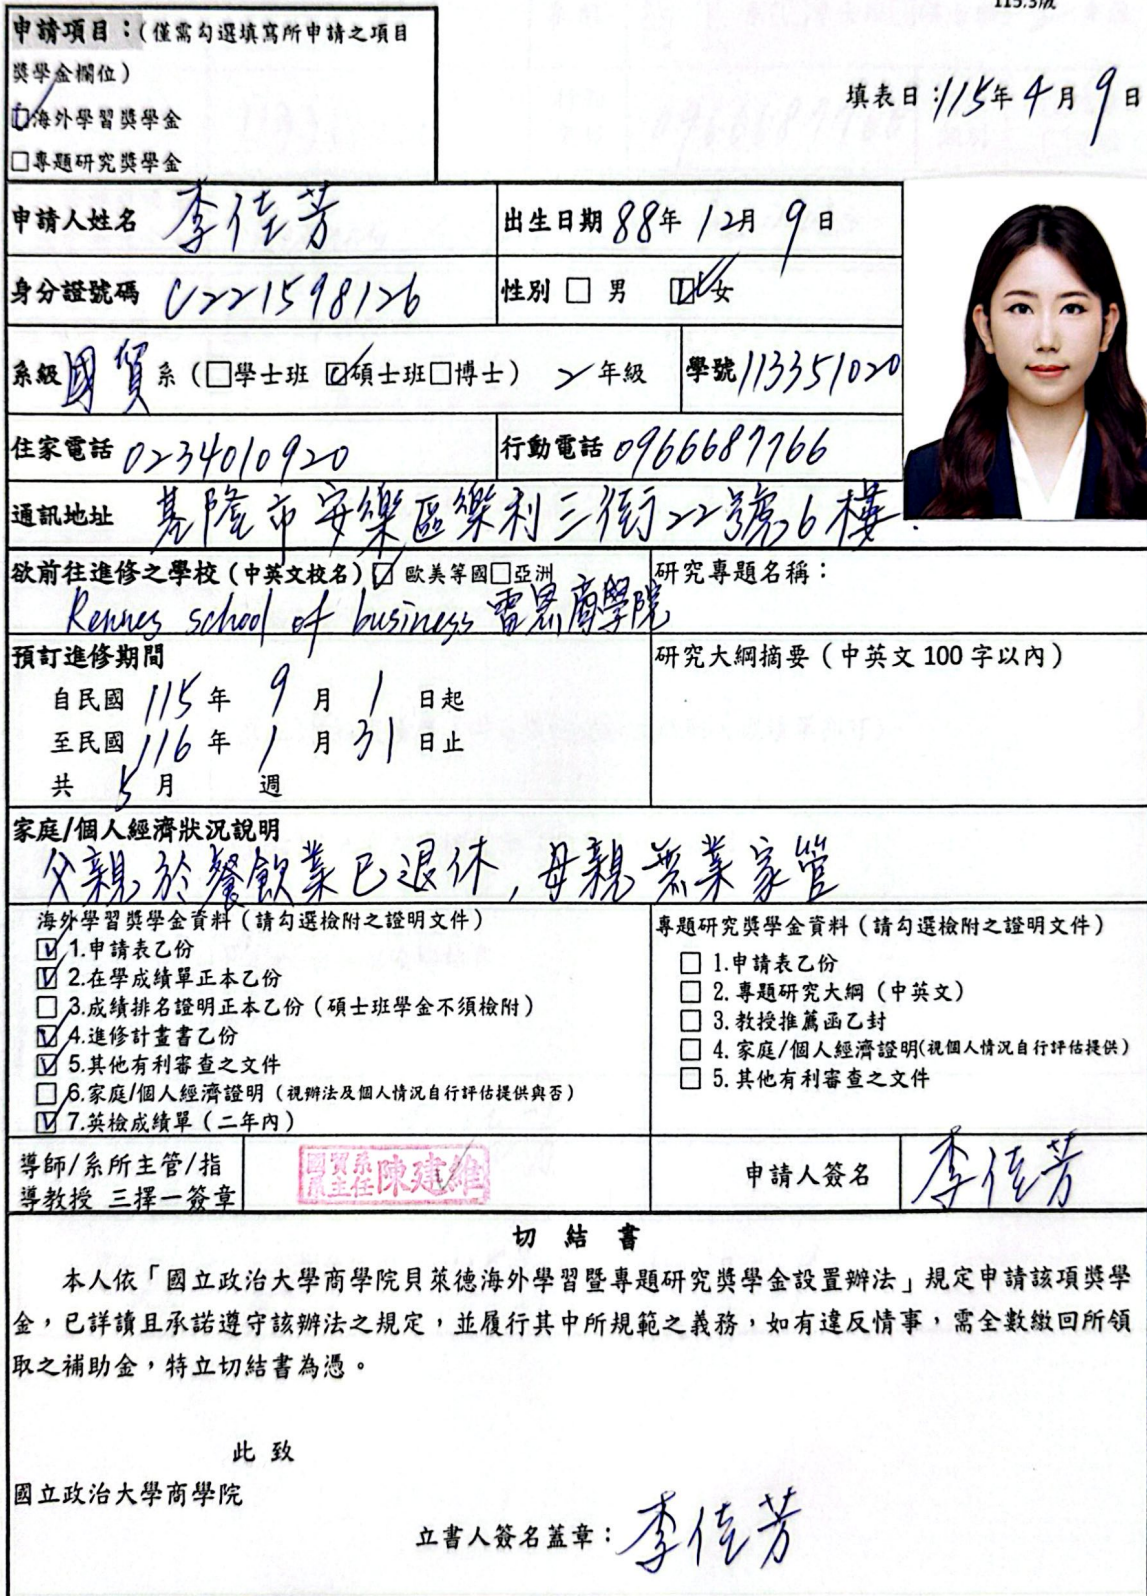 115.3版
申請項目：(僅需勾選填寫所申請之項目
獎學金欄位)
☑海外學習獎學金
□專題研究獎學金
填表日：115年4月9日
申請人姓名 李佳芳
出生日期 88年12月9日
身分證號碼 C221598126
性別 □ 男 ☑女
系級 國貿 系（□學士班 ☑碩士班□博士） 2 年級
學號 113351020
住家電話 0234010920
行動電話 0966687766
通訊地址 基隆市安樂區樂利三街22號6樓.
欲前往進修之學校（中英文校名）☑ 歐美等國□亞洲
Rennes school of business 雷恩商學院
研究專題名稱：
預訂進修期間
自民國 115 年 9 月 1 日起
至民國 116 年 1 月 31 日止
共 5 月 週
研究大綱摘要（中英文 100 字以內）
家庭/個人經濟狀況說明
父親於餐飲業已退休，母親無業家管
海外學習獎學金資料（請勾選檢附之證明文件）
☑ 1.申請表乙份
☑ 2.在學成績單正本乙份
□ 3.成績排名證明正本乙份（碩士班學金不須檢附）
☑ 4.進修計畫書乙份
☑ 5.其他有利審查之文件
□ 6.家庭/個人經濟證明（視辦法及個人情況自行評估提供與否）
☑ 7.英檢成績單（二年內）
專題研究獎學金資料（請勾選檢附之證明文件）
□ 1.申請表乙份
□ 2.專題研究大綱（中英文）
□ 3.教授推薦函乙封
□ 4.家庭/個人經濟證明(視個人情況自行評估提供)
□ 5.其他有利審查之文件
導師/系所主管/指
導教授 三擇一簽章
國貿系
系主任 陳建維
申請人簽名 李佳芳
切 結 書
本人依「國立政治大學商學院貝萊德海外學習暨專題研究獎學金設置辦法」規定申請該項獎學
金，已詳讀且承諾遵守該辦法之規定，並履行其中所規範之義務，如有違反情事，需全數繳回所領
取之補助金，特立切結書為憑。
此 致
國立政治大學商學院
立書人簽名蓋章：李佳芳